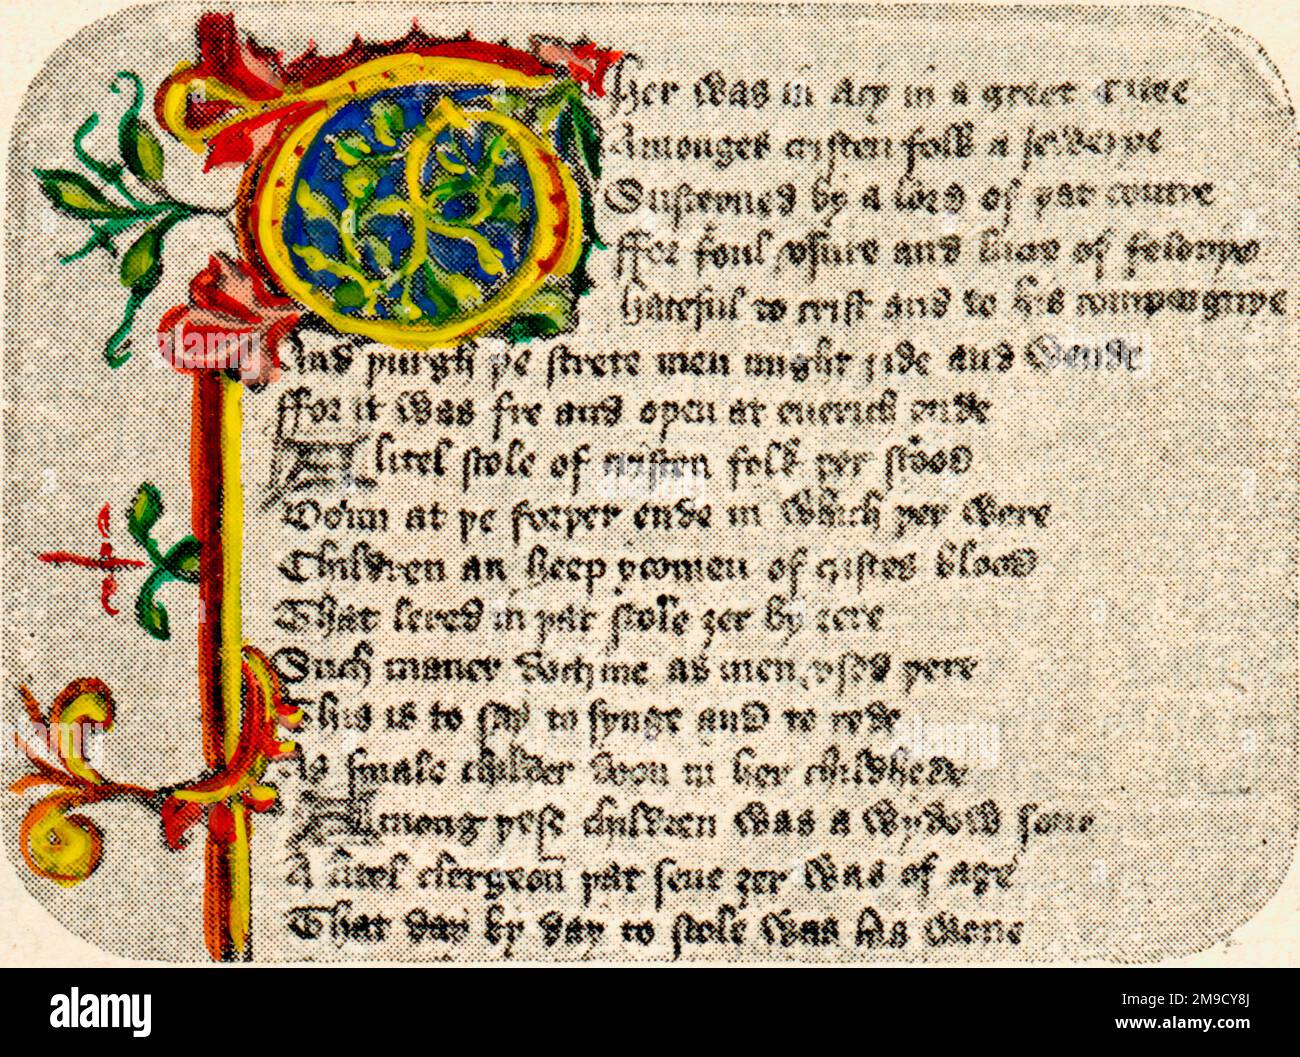 Ther was in Acy in a greet Citee
Amonges cristen folk a Iewerye
Susteyned by a lord of þat contre
ffor foul vsure and lucre of felonye
hateful to crist and to his compaignye
And þurgh þe strete men myght ride and wende
ffor it was fre and open at euerich ende
A litel scole of cristen folk þer stood
Doun at þe forþer ende in which þer were
Children an heep ycomen of cristes blood
That lered in þat scole ȝer by ȝere
Such maner doctrine as men vsed þere
This is to say to synge and to rede
As smale childer doon in her childhede
Among þese children was a wydow sone
A litel clergeon þat seue ȝer was of age
That day by day to scole was his wone
alamy
Image ID: 2M9CY8J
www.alamy.com